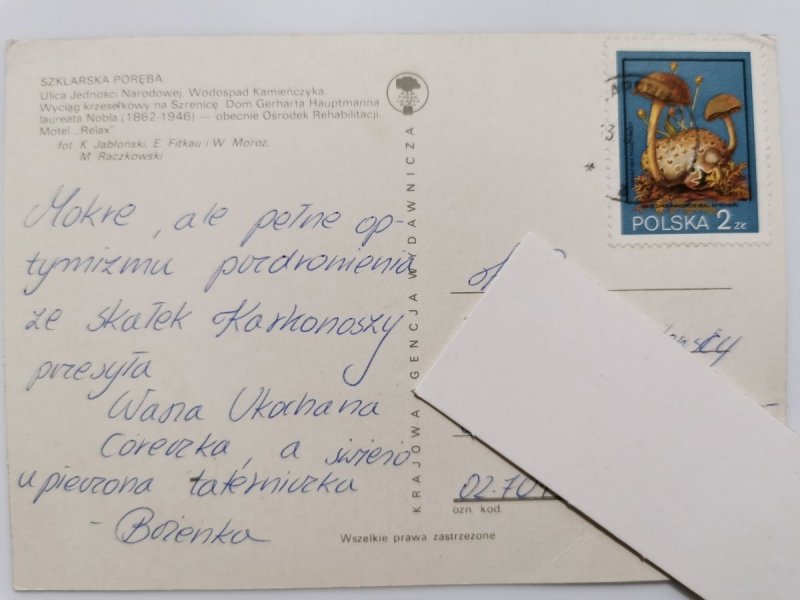 SZKLARSKA PORĘBA
Ulica Jedności Narodowej. Wodospad Kamieńczyka.
Wyciąg krzesełkowy na Szrenicę. Dom Gerharta Hauptmanna
laureata Nobla (1862-1946) — obecnie Ośrodek Rehabilitacji.
Motel „Relax"
fot. K. Jabłoński, E. Fitkau i W. Moroz,
M. Raczkowski
Mokre, ale pełne op-
tymizmu pozdrowienia
ze skałek Karkonoszy
przesyła
Wasza Ukochana
Córeczka, a świeżo
upieczona taterniczka
- Bożenka
KRAJOWA AGENCJA WYDAWNICZA
POLSKA 2 ZŁ
02-70
ozn. kod.
Wszelkie prawa zastrzeżone